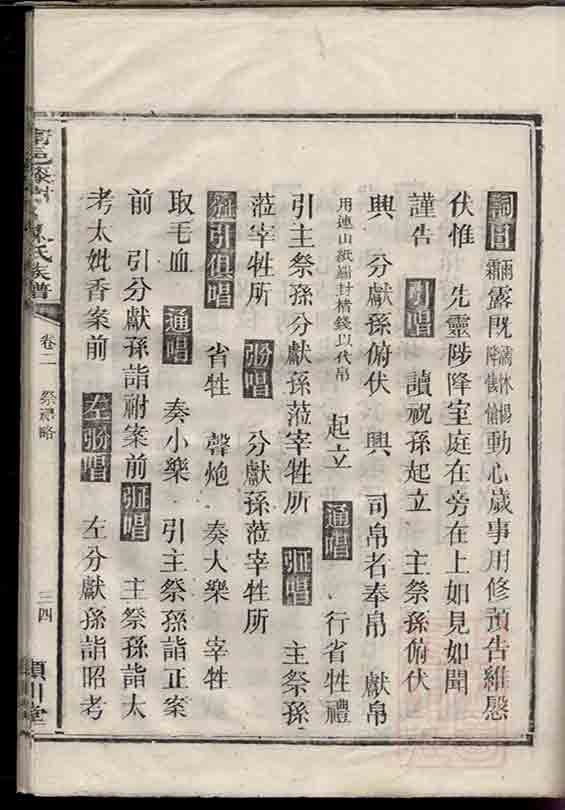 詞曰 霜露旣降淒愴怵惕動心歲事用修預告維慇
伏惟 先靈陟降室庭在旁在上如見如聞
謹告 引唱 讀祝孫起立 主祭孫俯伏
興 分獻孫俯伏 興 司帛者奉帛 獻帛
用連山紙糊封楮錢以代帛 起立 通唱 行省牲禮
引主祭孫分獻孫蒞宰牲所 正唱 主祭孫
蒞宰牲所 分唱 分獻孫蒞宰牲所
引俱唱 省牲 聲炮 奏大樂 宰牲
取毛血 通唱 奏小樂 引主祭孫詣正案
前 引分獻孫詣祔案前 正唱 主祭孫詣太
考太妣香案前 左唱 左分獻孫詣昭考
陳氏族譜 卷二 祭禮略 三四 潁川堂